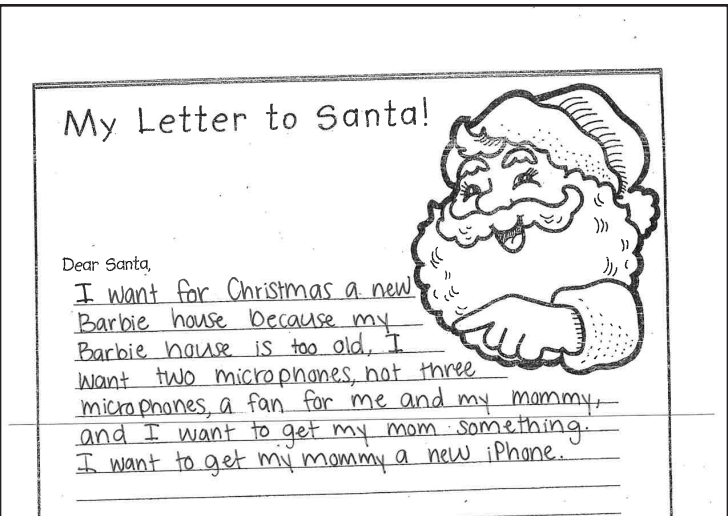 My Letter to Santa!
Dear Santa,
I want for Christmas a new
Barbie house because my
Barbie house is too old, I
want two microphones, not three
microphones, a fan for me and my mommy,
and I want to get my mom something.
I want to get my mommy a new iPhone.